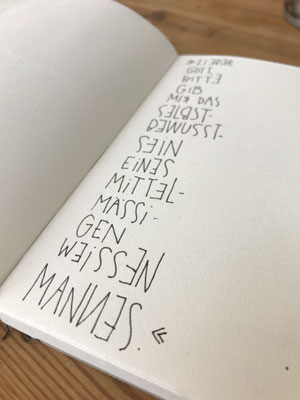 »LIEBER
GOTT
BITTE
GIB
MIR DAS
SELBST-
BEWUSST-
SEIN
EINES
MITTEL-
MÄSSI-
GEN
WEISSEN
MANNES.«